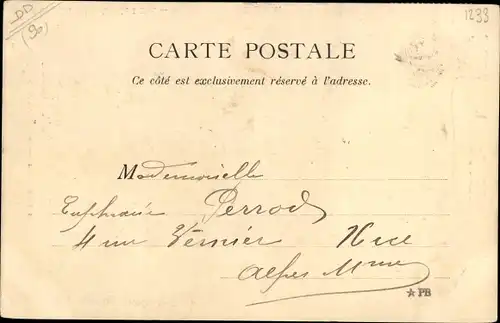 DD
(90)
1233
CARTE POSTALE
Ce côté est exclusivement réservé à l'adresse.
Mademoiselle
Euphrasie Perrod
4 rue Vernier Nice
Alpes Mmes
★ PB